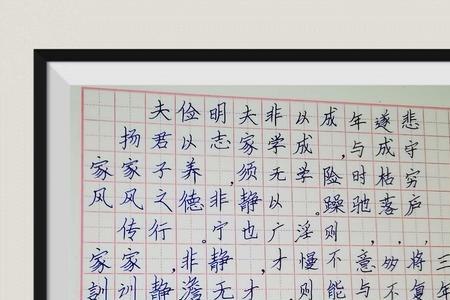 家风家训
扬家风传家训
夫君子之行，静
俭以养德。非澹
明志，非宁静无
夫家须静也，才
非学无以广才，
以成学。淫慢则
成，险躁则不能
年与时驰，意与
遂成枯落，多不
悲守穷庐，将复